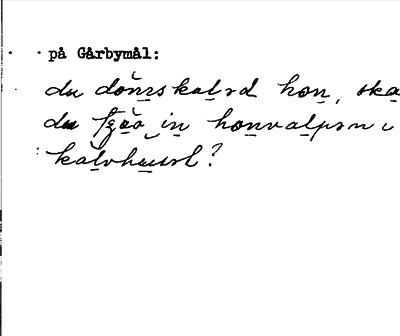 på Gårbymål:
du donzskalzd hon, ska
du in honvalpzn i
kalvhuuzl?